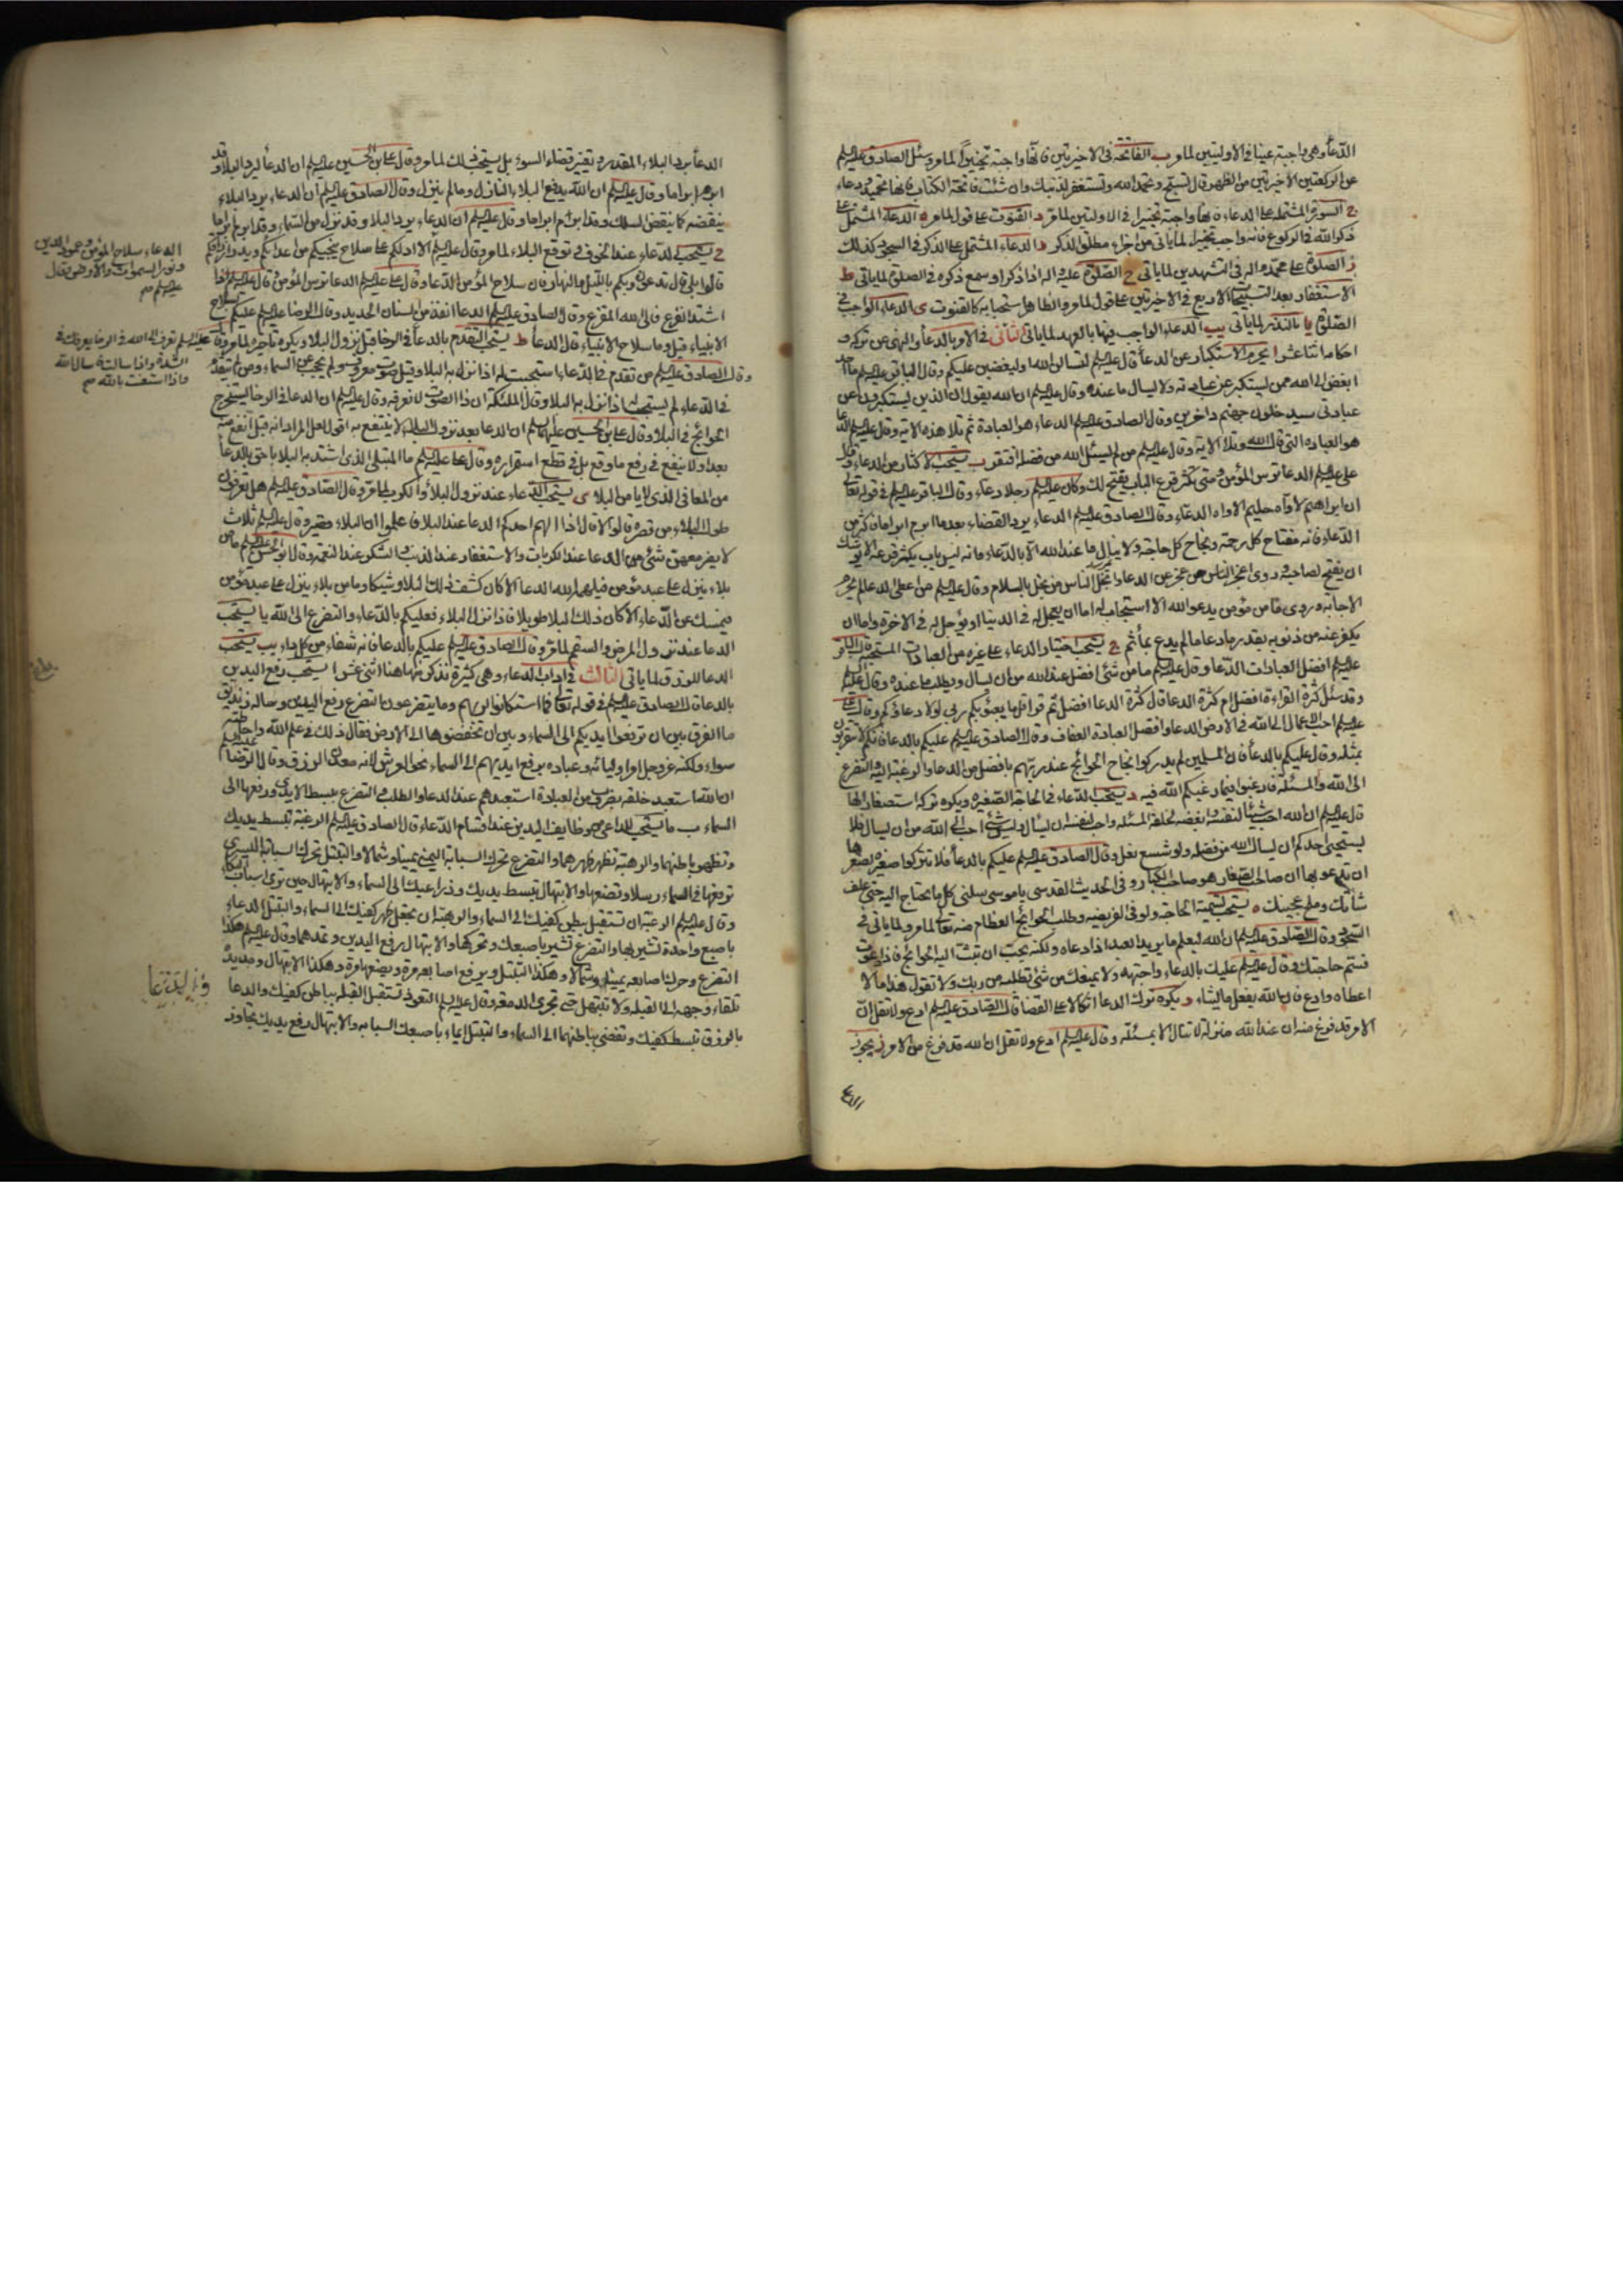 الدعاء وهي واجبة عينا في الاوليتين لما مر ب الفاتحة في الاخيرتين فانها واجبة تخييرا لما مر وسئل الصادق عليه السلم
عن الركعتين الاخيرتين من الظهر قال تسبح وتحمد الله وتستغفر لذنبك وان شئت فاتحة الكتاب فانها تحميد ودعاء
ج السورة المشتملة على الدعاء فانها واجبة تخييرا في الاولتين لما مر د القنوت على قول لما مر ه الدعاء المشتمل على
ذكر الله في الركوع فانه واجب تخييرا لما ياتي من اجزاء مطلق الذكر و الدعاء المشتمل على الذكر في السجود كذلك
ز الصلوة على محمد واله في التشهدين لما ياتي ح الصلوة عليه واله اذا ذكر او سمع ذكره في الصلوة لما ياتي ط
الاستغفار بعد التسبيحات الاربع في الاخيرتين على قول لما مر والظاهر استحبابه كالقنوت ي الدعاء الواجب في
الصلوة يا بالنذر لما ياتي يب الدعاء الواجب فيها بالعهد لما ياتي الثاني في الامر بالدعاء والنهي عن تركه و
احكامه اثنا عشر ا يحرم الاستكبار عن الدعاء قال عليه السلم لتسالن الله او ليغضبن عليكم وقال الباقر عليه السلم ما احد
ابغض الى الله ممن يستكبر عن عبادته ولا يسال ما عنده وقال عليه السلم ان الله يقول ان الذين يستكبرون عن
عبادتي سيدخلون جهنم داخرين وقال الصادق عليه السلم الدعاء هو العبادة ثم تلا هذه الاية وقال عليه السلم الدعا
هو العبادة التي قال الله وتلا الاية وقال عليه السلم من لم يسئل الله من فضله افتقر ب يستحب الاكثار من الدعاء وقال
علي عليه السلم الدعا ترس المؤمن ومتى تكثر قرع الباب يفتح لك وكان عليه السلم رجلا دعاء وقال الباقر عليه السلم في قوله تعالى
ان ابراهيم لاواه حليم الاواه الدعاء وقال الصادق عليه السلم الدعاء يرد القضاء بعد ما ابرم ابراما فاكثر من
الدعاء فانه مفتاح كل رحمة ونجاح كل حاجة ولا ينال ما عند الله الا بالدعاء فانه ليس باب يكثر قرعه الا يوشك
ان يفتح لصاحبه وروى اعجز الناس من عجز عن الدعاء وابخل الناس من بخل بالسلام وقال عليه السلم من اعطى الدعا لم يحرم
الاجابة وروى ما من مؤمن يدعو الله الا استجاب له اما ان يعجل له في الدنيا او يؤجل له في الاخرة واما ان
يكفر عنه من ذنوبه بقدر ما دعا ما لم يدع بمأثم ج يستحب اختيار الدعاء على غيره من العبادات المستحبة قال الباقر
عليه السلم افضل العبادات الدعا وقال عليه السلم ما من شئ افضل عند الله من ان يسال ويطلب ما عنده وقال عليه السلم
وقد سئل كثرة القراءة افضل ام كثرة الدعا قال كثرة الدعا افضل ثم قرا قل ما يعبؤ بكم ربي لولا دعاؤكم وقال علي
عليه السلم احب الاعمال الى الله في الارض الدعا وافضل العبادة العفاف وقال الصادق عليه السلم عليكم بالدعا فانكم لا تتقربون
بمثله وقال عليكم بالدعا فان المسلمين لم يدركوا نجاح الحوائج عند ربهم بافضل من الدعا والرغبة اليه والتضرع
الى الله والمسئلة فارغبوا فيما رغبكم الله فيه د يستحب الدعاء في الحاجة الصغيرة ويكره تركه استصغارا لها
قال عليه السلم ان الله احب شيئا لنفسه وابغضه لخلقه المسئلة واحب لنفسه ان يسأل وليس شئ احب الى الله من ان يسال فلا
يستحيي احدكم ان يسال الله من فضله ولو شسع نعل وقال الصادق عليه السلم عليكم بالدعا فلا تتركوا صغيرة لصغرها
ان تدعو بها ان صاحب الصغار هو صاحب الكبار وفي الحديث القدسي يا موسى سلني كل ما تحتاج اليه حتى علف
شاتك وملح عجينك ه يستحب تسمية الحاجة ولو في الفريضة وطلب الحوائج العظام منه تعالى لما مر ولما ياتي في
السجود وقال الصادق عليه السلم ان الله ليعلم ما يريد العبد اذا دعاه ولكنه يحب ان تبث اليه الحوائج فاذا دعوت
فسم حاجتك وقال عليه السلم عليك بالدعاء واجتهد ولا يمنعك من شئ تطلبه من ربك ولا تقول هذا ما لا
اعطاه وادع فان الله يفعل ما يشاء و يكره ترك الدعا اتكالا على القضا قال الصادق عليه السلم ادع ولا تقل ان
الامر قد فرغ منه ان عند الله منزلة لا تنال الا بمسئلة وقال عليه السلم ادع ولا تقل ان الله قد فرغ من الامر ز يجوز
الدعا
الدعا برد البلاء المقدر وتغيير قضاء السوء بل يستحب ذلك لما مر وقال علي بن الحسين عليه السلم ان الدعا ليرد البلاء وقد
ابرم ابراما وقال عليه السلم ان الله يدفع البلاء النازل وما لم ينزل وقال الصادق عليه السلم ان الدعاء يرد البلاء
ينقضه كما ينقض السلك وقد ابرم ابراما وقال عليه السلم ان الدعاء يرد البلا وقد نزل من السماء وقد ابرم ابراما
ح يستحب الدعاء عند الخوف في توقع البلاء لما مر وقال عليه السلم الا ادلكم على سلاح ينجيكم من اعدائكم ويدر ارزاقكم
قالوا بلى قال تدعون ربكم بالليل والنهار فان سلاح المؤمن الدعا وقال علي عليه السلم الدعا ترس المؤمن وقال عليه السلم اذا
اشتد الفزع فالى الله المفزع وقال الصادق عليه السلم الدعا انفذ من السنان الحديد وقال الرضا عليه السلم عليكم بسلاح
الانبياء قيل وما سلاح الانبياء قال الدعا ط يستحب التقدم بالدعا في الرخا قبل نزول البلا ويكره تاخيره لما مر وقال
وقال الصادق عليه السلم من تقدم في الدعاء استجيب له اذا نزل به البلا وقيل صوت معروف ولم يحجب عن السماء ومن لم يتقدم
في الدعاء لم يستجب له اذا نزل به البلا وقال الملئكة ان ذا الصوت لا نعرفه وقال عليه السلم ان الدعا في الرخا يستخرج
الحوائج في البلا وقال علي بن الحسين عليه السلم ان الدعا بعد نزول البلا لا ينتفع به اقول لعل المراد انه قبل انفع منه
بعد او لا ينفع في رفع ما وقع بل في قطع استمراره وقال علي عليه السلم ما المبتلى الذي اشتد به البلا باحق بالدعا
من المعافى الذي لا يامن البلا ي يستحب الدعاء عند نزول البلاء والكرب لما مر وقال الصادق عليه السلم هل تعرفون
طول البلاء من قصره قالوا لا قال اذا الهم احدكم الدعا عند البلا فاعلموا ان البلاء قصير وقال عليه السلم ثلاث
لا يضر معهن شئ الدعا عند الكربات والاستغفار عند الذنب والشكر عند النعمة وقال ابو الحسن عليه السلم ما من
بلاء ينزل على عبد مؤمن فيلهمه الله الدعا الا كان كشف ذلك البلا وشيكا وما من بلاء ينزل على عبد مؤمن
فيمسك عن الدعاء الا كان ذلك البلا طويلا فاذا نزل البلاء فعليكم بالدعاء والتضرع الى الله يا يستحب
الدعا عند نزول المرض والسقم لما مر وقال الصادق عليه السلم عليكم بالدعا فانه شفاء من كل داء يب يستحب
الدعا للرزق لما ياتي الثالث في اداب الدعاء وهي كثيرة نذكر منها هنا اثني عشر ا يستحب رفع اليدين
بالدعا قال الصادق عليه السلم في قوله تعالى فما استكانوا لربهم وما يتضرعون التضرع رفع اليدين وساله زنديق
ما الفرق بين ان ترفعوا ايديكم الى السماء وبين ان تخفضوها الى الارض فقال ذلك في علم الله واحاطته
سواء ولكنه عز وجل امر اوليائه وعباده برفع ايديهم الى السماء نحو العرش لانه معدن الرزق وقال الرضا عليه السلم
ان الله استعبد خلقه بضروب من العبادة استعبدهم عند الدعا والطلب والتضرع ببسط الايدي ورفعها الى
السماء ب ما يستحب للداعي من وظايف اليدين عند اقسام الدعاء قال الصادق عليه السلم الرغبة تبسط يديك
وتظهر باطنهما والرهبة تظهر ظهرهما والتضرع تحرك السبابة اليمنى يمينا وشمالا والتبتل تحرك السبابة اليسرى
ترفعها في السماء رسلا وتضعها والابتهال تبسط يديك وذراعيك الى السماء والابتهال حين ترى اسباب البكا
وقال عليه السلم الرغبة ان تستقبل ببطن كفيك الى السماء والرهبة ان تجعل ظهر كفيك الى السماء والتبتل الدعاء
باصبع واحدة تشير بها والتضرع تشير باصبعك وتحركها والابتهال رفع اليدين وتمدهما وقال عليه السلم هكذا
التضرع وحرك اصابعه يمينا وشمالا وهكذا التبتل ويرفع اصابعه مرة ويضعها مرة وهكذا الابتهال ومد يده
تلقاء وجهه الى القبلة ولا تبتهل حتى تجري الدمعة وقال عليه السلم التعوذ تستقبل القبلة بباطن كفيك والدعا
بالرزق تبسط كفيك وتفضي بباطنهما الى السماء والتبتل ايماء باصبعك السبابة والابتهال رفع يديك تجاوز
الدعاء سلاح المؤمن وعمود الدين
ونور السموات والارض وقال
عليه السلم
عليه السلم تعرف الى الله في الرخا يعرفك في
الشدة واذا سالت فاسال الله
واذا استعنت بالله